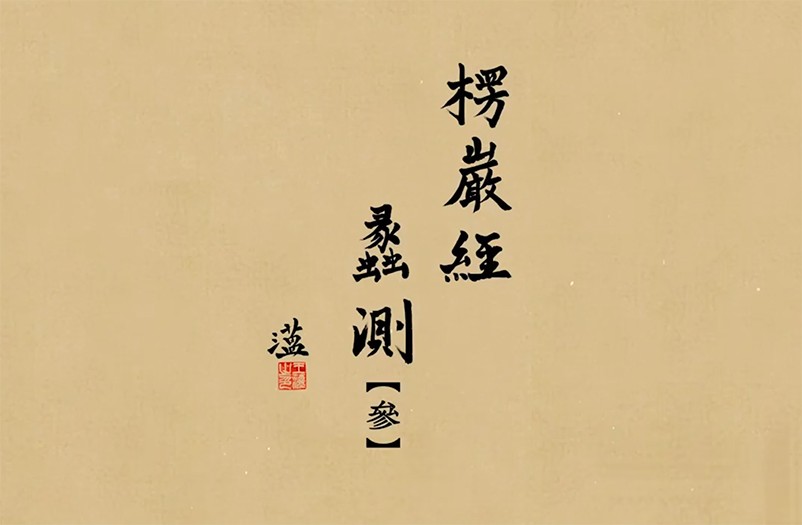 楞嚴經
蠡測
【參】
薀